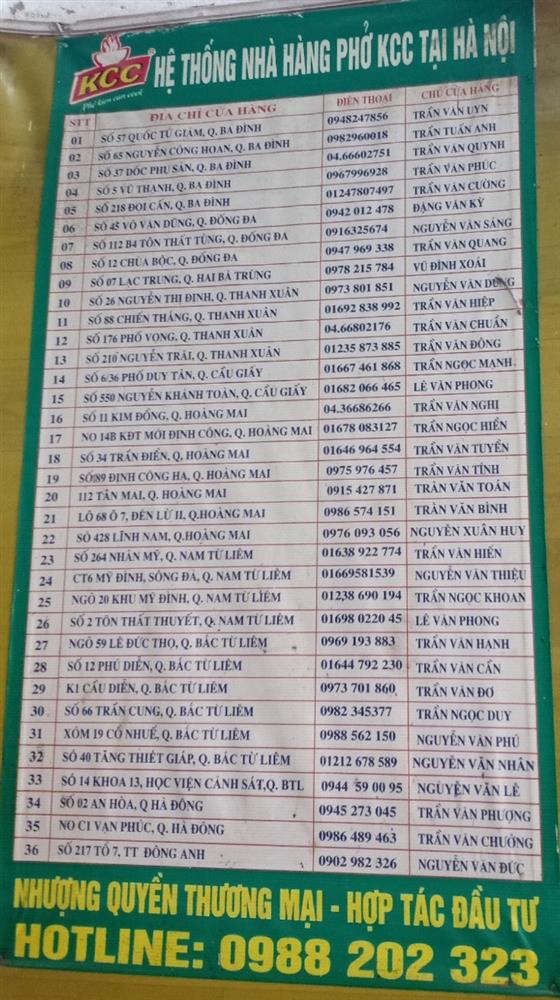 KCC
Phở kiểu cần vươt
HỆ THỐNG NHÀ HÀNG PHỞ KCC TẠI HÀ NỘI
STT ĐỊA CHỈ CỬA HÀNG ĐIỆN THOẠI CHỦ CỬA HÀNG
01 SỐ 57 QUỐC TỬ GIÁM, Q. BA ĐÌNH 0948247856 TRẦN VĂN UYN
02 SỐ 65 NGUYỄN CÔNG HOAN, Q. BA ĐÌNH 0982960018 TRẦN TUẤN ANH
03 SỐ 37 DỐC PHỤ SẢN, Q. BA ĐÌNH 04.66602751 TRẦN VĂN QUYNH
04 SỐ 5 VŨ THẠNH, Q. BA ĐÌNH 0967996928 TRẦN VĂN PHÚC
05 SỐ 218 ĐỘI CẤN, Q. BA ĐÌNH 01247807497 TRẦN VĂN CƯỜNG
06 SỐ 45 VÕ VĂN DŨNG, Q. ĐỐNG ĐA 0942 012 478 ĐẶNG VĂN KỲ
07 SỐ 112 B4 TÔN THẤT TÙNG, Q. ĐỐNG ĐA 0916325674 NGUYỄN VĂN SÁNG
08 SỐ 12 CHÙA BỘC, Q. ĐỐNG ĐA 0947 969 338 TRẦN VĂN QUANG
09 SỐ 07 LẠC TRUNG, Q. HAI BÀ TRƯNG 0978 215 784 VŨ ĐÌNH XOÁI
10 SỐ 26 NGUYỄN THỊ ĐỊNH, Q. THANH XUÂN 0973 801 851 NGUYỄN VĂN DŨNG
11 SỐ 88 CHIẾN THẮNG, Q. THANH XUÂN 01692 838 992 TRẦN VĂN HIỆP
12 SỐ 176 PHỐ VỌNG, Q. THANH XUÂN 04.66802176 TRẦN VĂN CHUẨN
13 SỐ 210 NGUYỄN TRÃI, Q. THANH XUÂN 01235 873 885 TRẦN VĂN ĐÔNG
14 SỐ 6/36 PHỐ DUY TÂN, Q. CẦU GIẤY 01667 461 868 TRẦN NGỌC MẠNH
15 SỐ 550 NGUYỄN KHÁNH TOÀN, Q. CẦU GIẤY 01682 066 465 LÊ VĂN PHONG
16 SỐ 11 KIM ĐỒNG, Q. HOÀNG MAI 04.36686266 TRẦN VĂN NGHỊ
17 NO 14B KĐT MỚI ĐỊNH CÔNG, Q. HOÀNG MAI 01678 083127 TRẦN NGỌC HIỂN
18 SỐ 34 TRẦN ĐIỀN, Q. HOÀNG MAI 01646 964 554 TRẦN VĂN TUYỂN
19 SỐ189 ĐỊNH CÔNG HẠ, Q. HOÀNG MAI 0975 976 457 TRẦN VĂN TÍNH
20 112 TÂN MAI, Q. HOÀNG MAI 0915 427 871 TRẦN VĂN TOẢN
21 LÔ 68 Ô 7, ĐỀN LỪ II, Q.HOÀNG MAI 0986 574 151 TRẦN VĂN BÌNH
22 SỐ 428 LĨNH NAM, Q.HOÀNG MAI 0976 093 056 NGUYỄN XUÂN HUY
23 SỐ 264 NHÂN MỸ, Q. NAM TỪ LIÊM 01638 922 774 TRẦN VĂN HIỂN
24 CT6 MỸ ĐÌNH, SÔNG ĐÀ, Q. NAM TỪ LIÊM 01669581539 NGUYỄN VĂN THIỆU
25 NGÕ 20 KHU MỸ ĐÌNH, Q. NAM TỪ LIÊM 01238 690 194 TRẦN NGỌC KHOAN
26 SỐ 2 TÔN THẤT THUYẾT, Q. NAM TỪ LIÊM 01698 0220 45 LÊ VĂN PHONG
27 NGÕ 59 LÊ ĐỨC THỌ, Q. BẮC TỪ LIÊM 0969 193 883 TRẦN VĂN HẠNH
28 SỐ 12 PHÚ DIỄN, Q. BẮC TỪ LIÊM 01644 792 230 TRẦN VĂN CẦN
29 K1 CẦU DIỄN, Q. BẮC TỪ LIÊM 0973 701 860 TRẦN VĂN ĐƠ
30 SỐ 66 TRẦN CUNG, Q. BẮC TỪ LIÊM 0982 345377 TRẦN NGỌC DUY
31 XÓM 19 CỔ NHUẾ, Q. BẮC TỪ LIÊM 0988 562 150 NGUYỄN VĂN PHÚ
32 SỐ 40 TĂNG THIẾT GIÁP, Q. BẮC TỪ LIÊM 01212 678 589 NGUYỄN VĂN NHÂN
33 SỐ 14 KHOA 13, HỌC VIỆN CẢNH SÁT,Q. BTL 0944 59 00 95 NGUYỄN VĂN LÊ
34 SỐ 02 AN HÒA, Q HÀ ĐÔNG 0945 273 045 TRẦN VĂN PHƯỢNG
35 NO C1 VẠN PHÚC, Q. HÀ ĐÔNG 0986 489 463 TRẦN VĂN CHƯỞNG
36 SỐ 217 TỔ 7, TT ĐÔNG ANH 0902 982 326 NGUYỄN VĂN ĐỨC
NHƯỢNG QUYỀN THƯƠNG MẠI - HỢP TÁC ĐẦU TƯ
HOTLINE: 0988 202 323